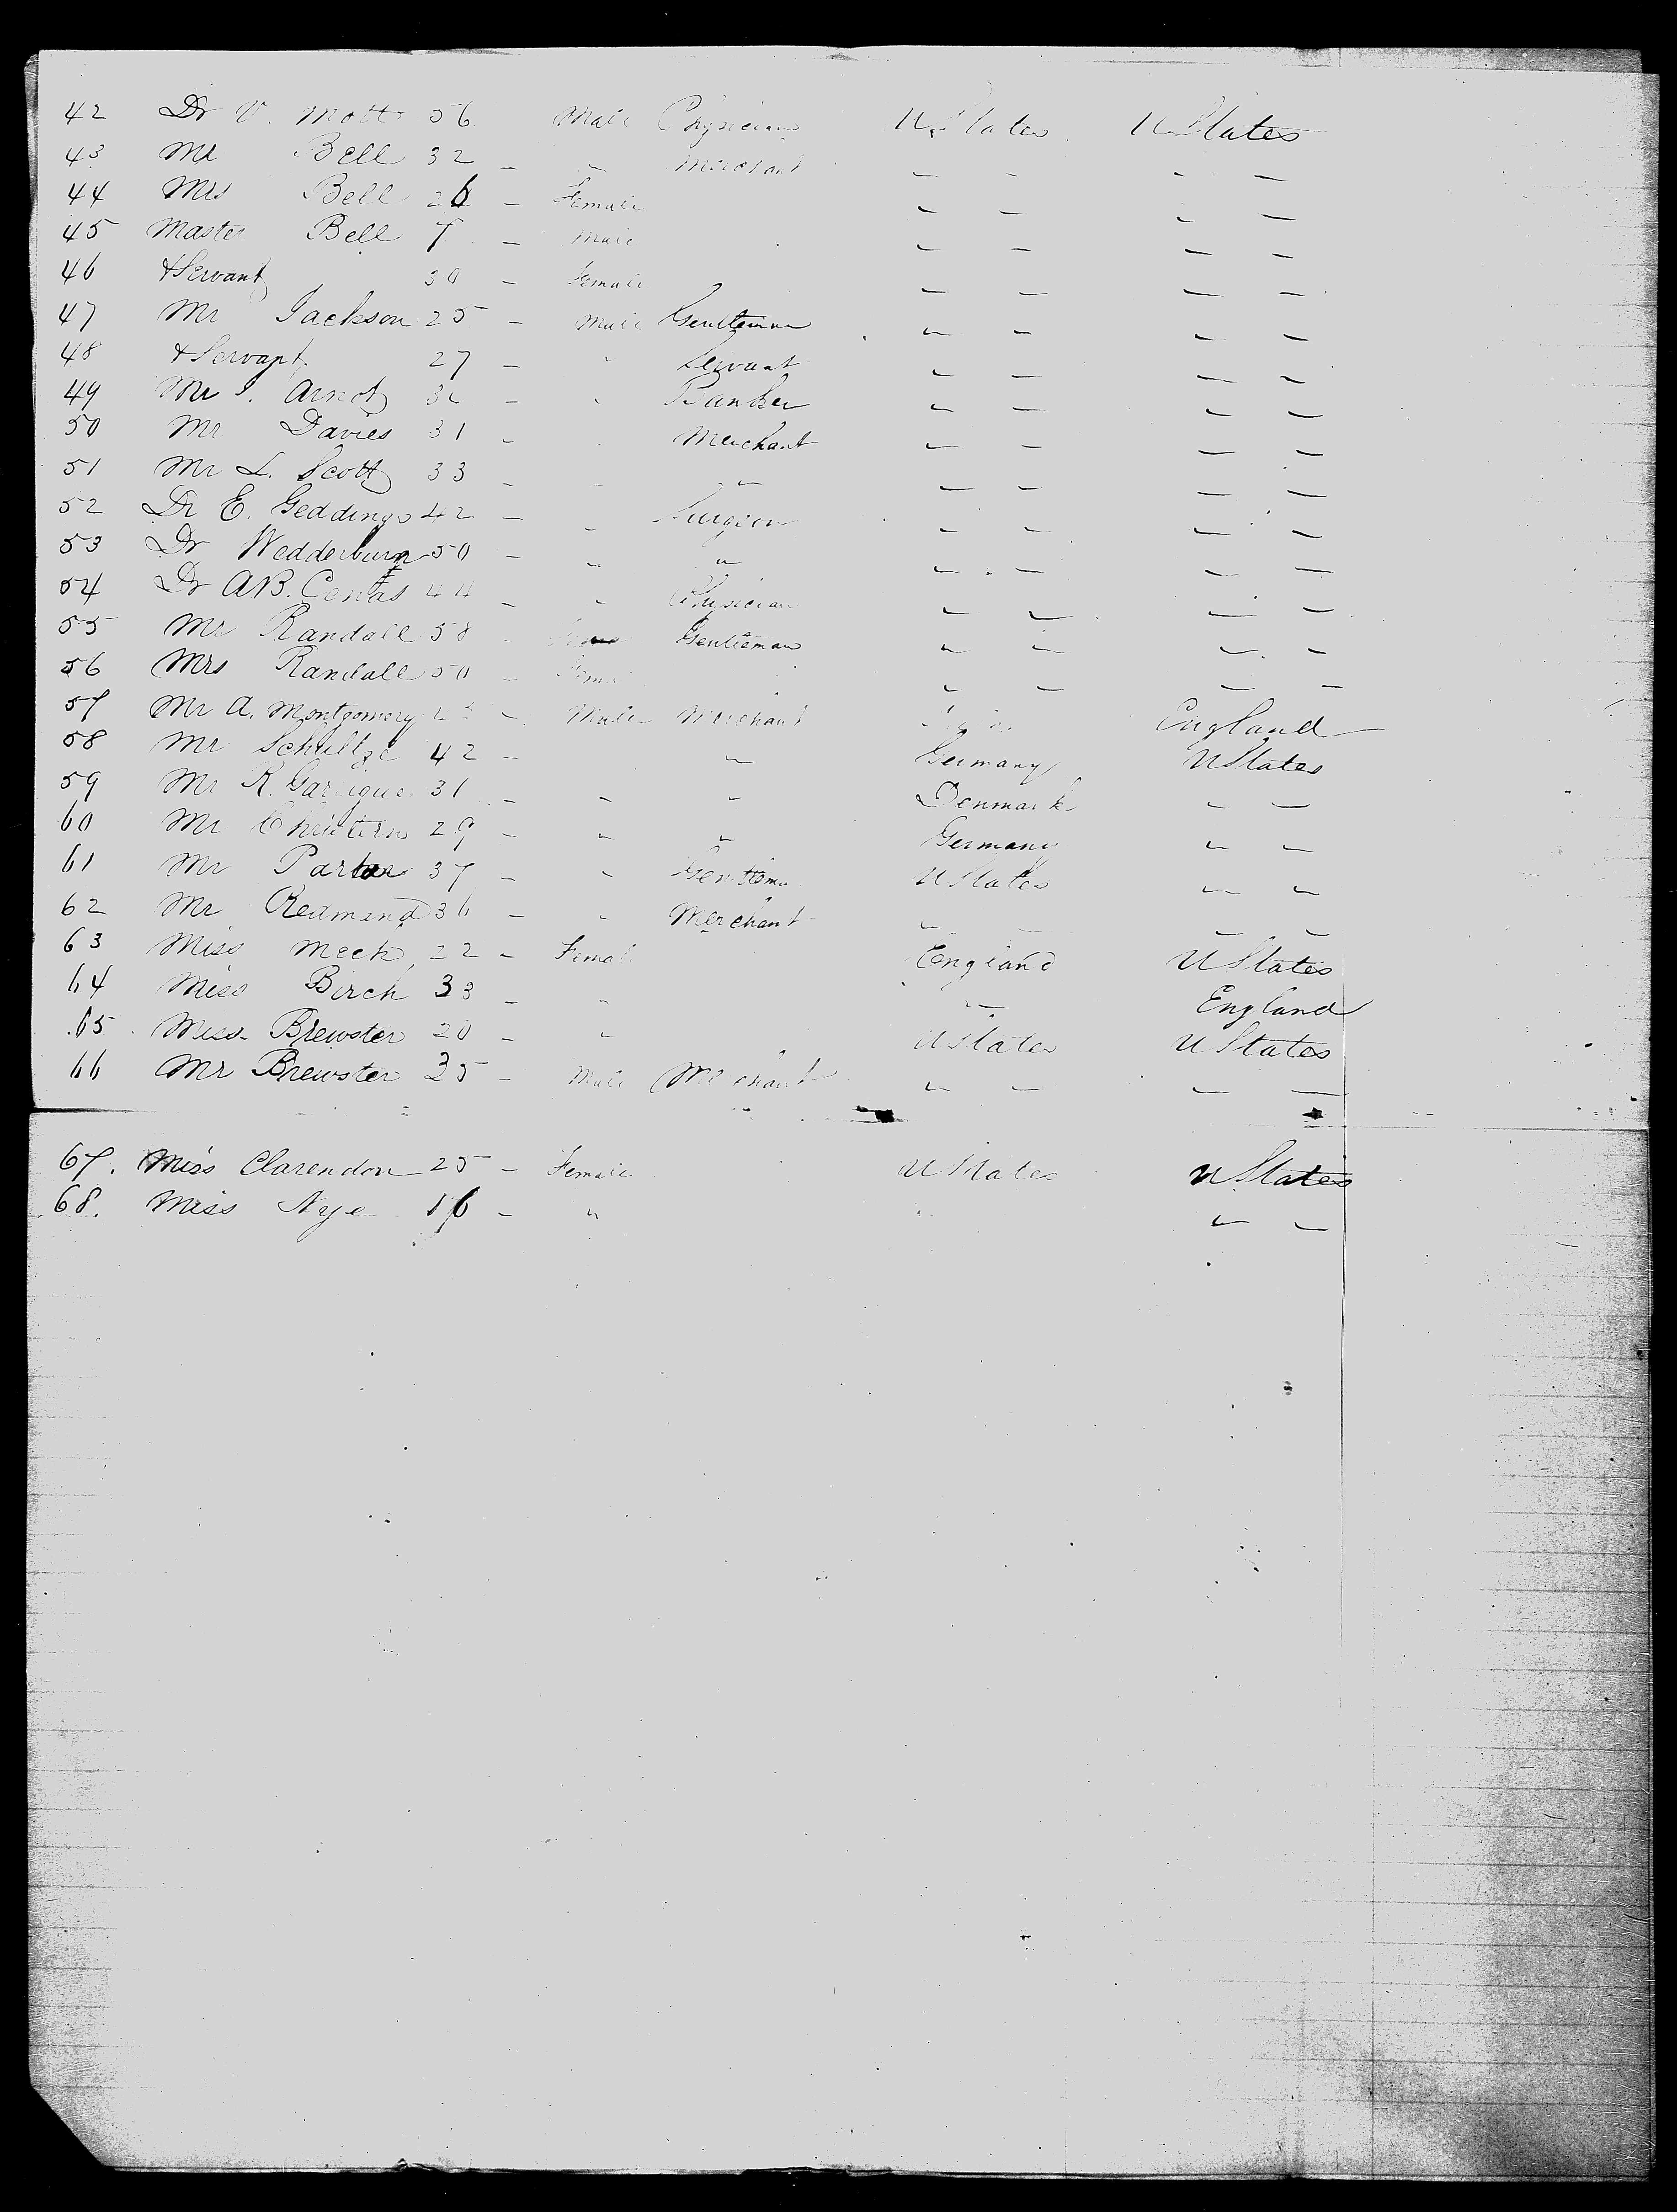 42 Dr V. Mott 56 Male Physician U States U States
43 Mr Bell 32 — " Merchant — — — —
44 Mrs Bell 26 — Female — — — —
45 Master Bell 7 — Male — — — —
46 & Servant 30 — Female — — — —
47 Mr Jackson 25 — Male Gentleman — — — —
48 & Servant 27 — " Servant — — — —
49 Mr I. Arnot — " Banker — — — —
50 Mr Davies 31 — " Merchant — — — —
51 Mr L. Scott 33 — — " — — — —
52 Dr E. Geddings 42 — — Surgeon — — — —
53 Dr Wedderburn 50 — " " — — — —
54 Dr AB. Cenas 44 — " Physician — — — —
55 Mr Randall 58 — Gentleman — — — —
56 Mrs Randall 50 — Female — — — —
57 Mr A. Montgomery — Male Merchant England
58 Mr Schultze 42 — " Germany U States
59 Mr R. Garrigue 31 — " " Denmark — —
60 Mr Christern 29 — " " Germany — —
61 Mr 37 — " Gentleman U States — —
62 Mr Redmond 36 — " Merchant — — — —
63 Miss Meek 22 — Female England U States
64 Miss Birch 33 — " — England
65 Miss Brewster 20 — " U States U States
66 Mr Brewster 35 — Male Merchant — — — —
67. Miss Clarendon 25 — Female U States U States
68. Miss Nye 16 — " — —